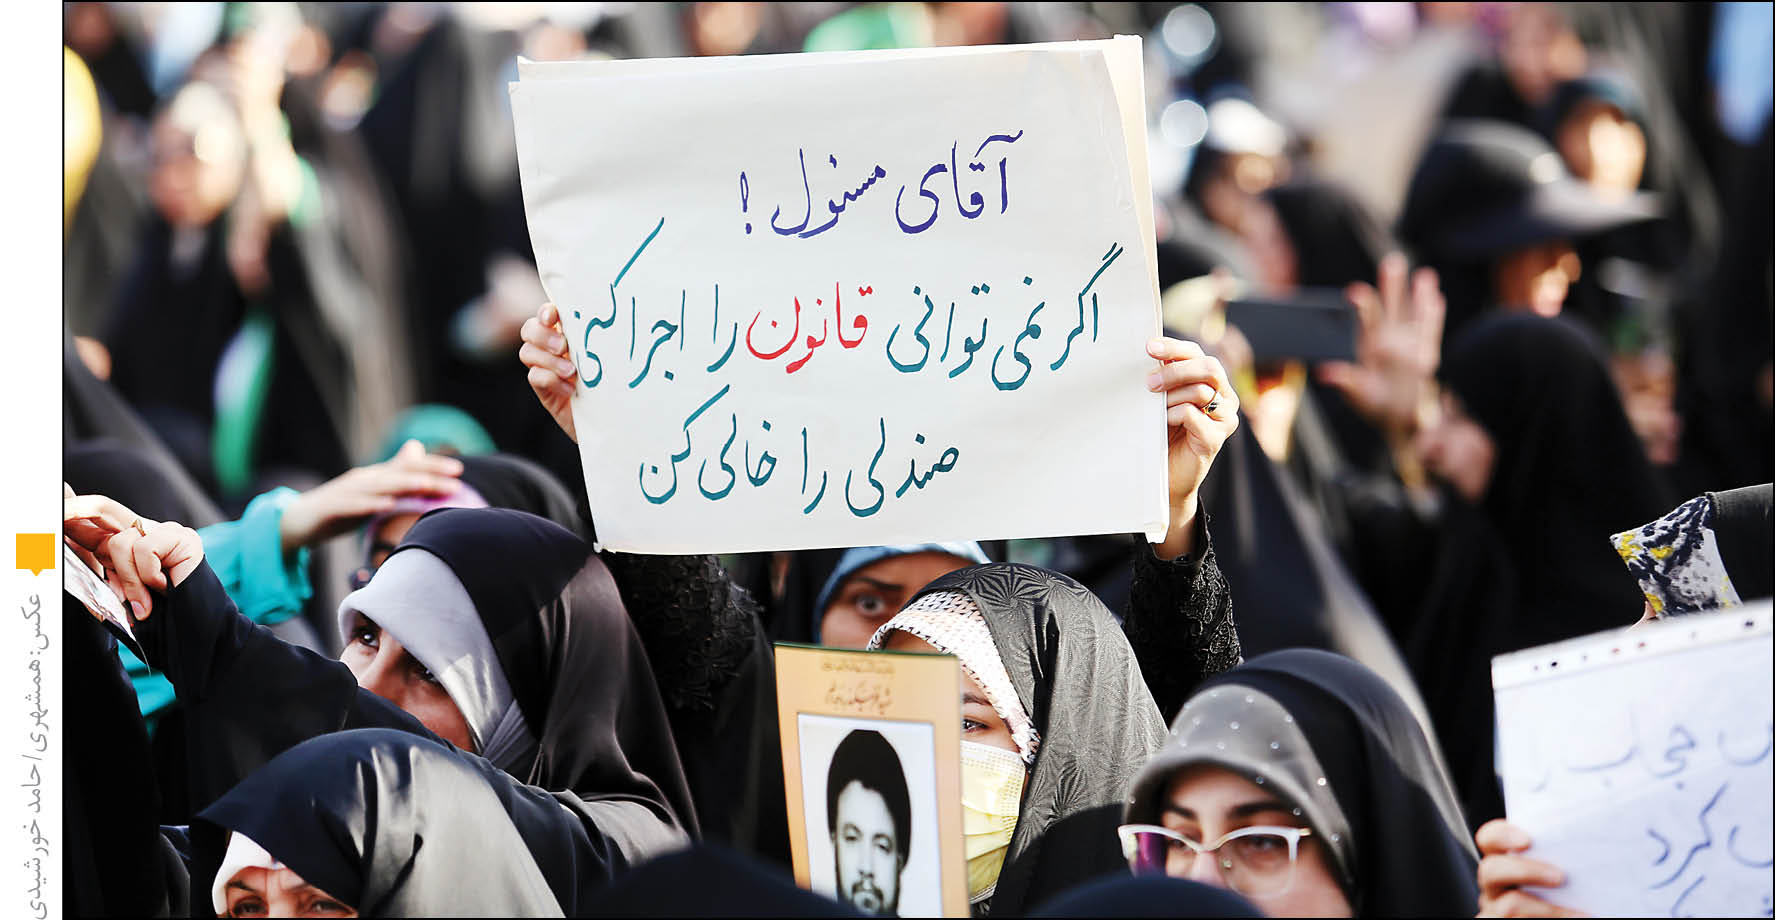 آقای مسئول!
اگر نمی توانی قانون را اجرا کنی
صندلی را خالی کن
حجاب را
کرد
عکس: همشهری/ حامد خورشیدی